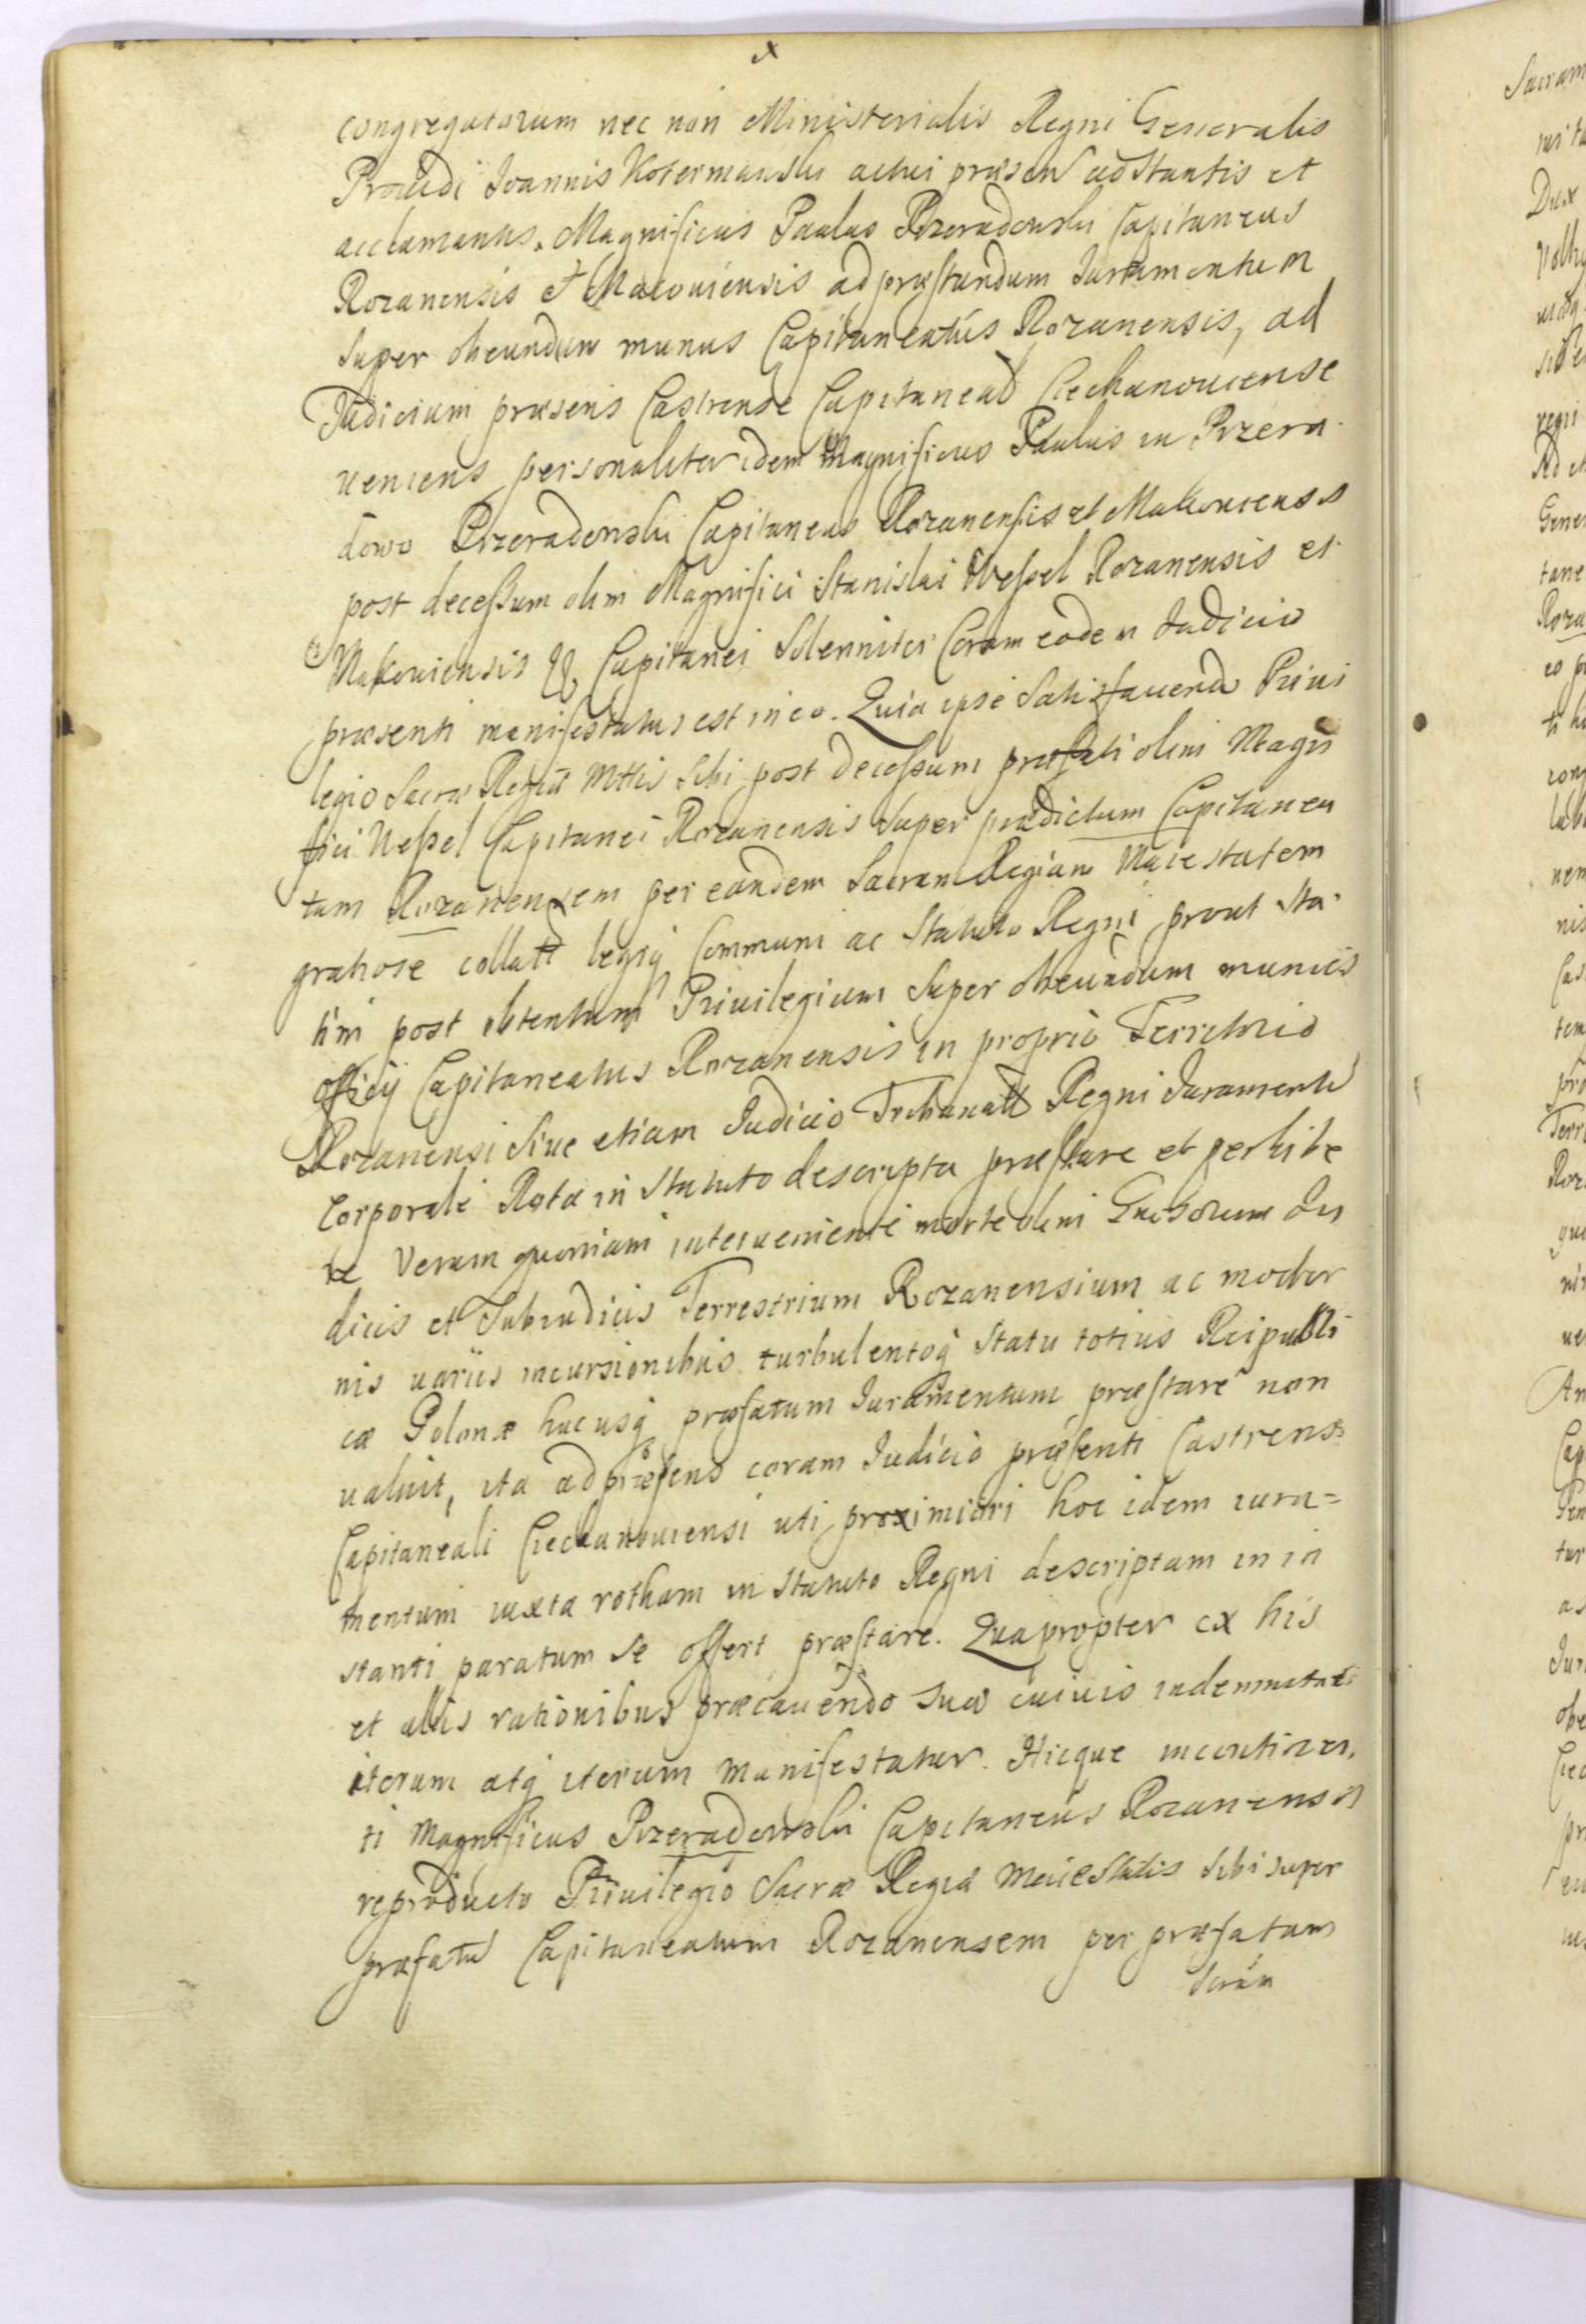 congregatorum nec non Ministerialis Regni Generalis
Prouidi Ioannis Kotermanski actui præsen adstantis et
acclamantis. Magnificus Paulus Przeradowski Capitaneus
Rozanensis et Macouiensis ad præstandum Iuramentum
super obeundum munus Capitaneatus Rozanensis, ad
Iudicium præsens Castrense Capitaneale Ciechanouiense
ueniens personaliter idem Magnificus Paulus in Przera
dowo Przeradowski Capitaneus Rozanensis et Makouiensis
post decessum olim Magnifici Stanislai Wessel Rozanensis et
Makouiensis Capitanei Solenniter Coram eodem Iudicio
præsenti manifestatus est in eo. Quia ipse Satisfaciendo Priui
legio Sacræ Regiæ Mttis Sibi post decessum præfati olim Magni
fici Wessel Capitanei Rozanensis super prædictum Capitanea
tum Rozanensem per eandem Sacram Regiam Maiestatem
gratiose collato legiq Communi ac Statuto Regni prout sta
tim post obtentum Priuilegium super obeundum munus
officij Capitaneatus Rozanensis in proprio Territorio
Rozanensi siue etiam Iudicio Tribunali Regni Iuramento
Corporali Rota in Statuto descripta præstare et perhibe
re Verum quoniam interueniente morte olim Gnsorum Iu
dicis et Subiudicis Terrestrium Rozanensium ac moder
nis uariis incursionibus turbulentoq Statu totius Reipubli
cæ Polonæ hucusq præfatum Iuramentum præstare non
ualuit, ita ad præsens coram Iudicio præsenti Castrensi
Capitaneali Ciechanouiensi uti proximiori hoc idem iura=
mentum iuxta rotham in Statuto Regni descriptam in in
stanti paratum se offert præstare. Quapropter ex his
et aliis rationibus præcauendo suæ cuiuis indemnitati
iterum atq iterum manifestatur. Hicque incontinen,
ti Magnificus Przeradowski Capitaneus Rozanensis
reproducto Priuilegio Sacræ Regiæ Maiestatis sibi super
præfatu Capitaneatum Rozanensem per præfatam